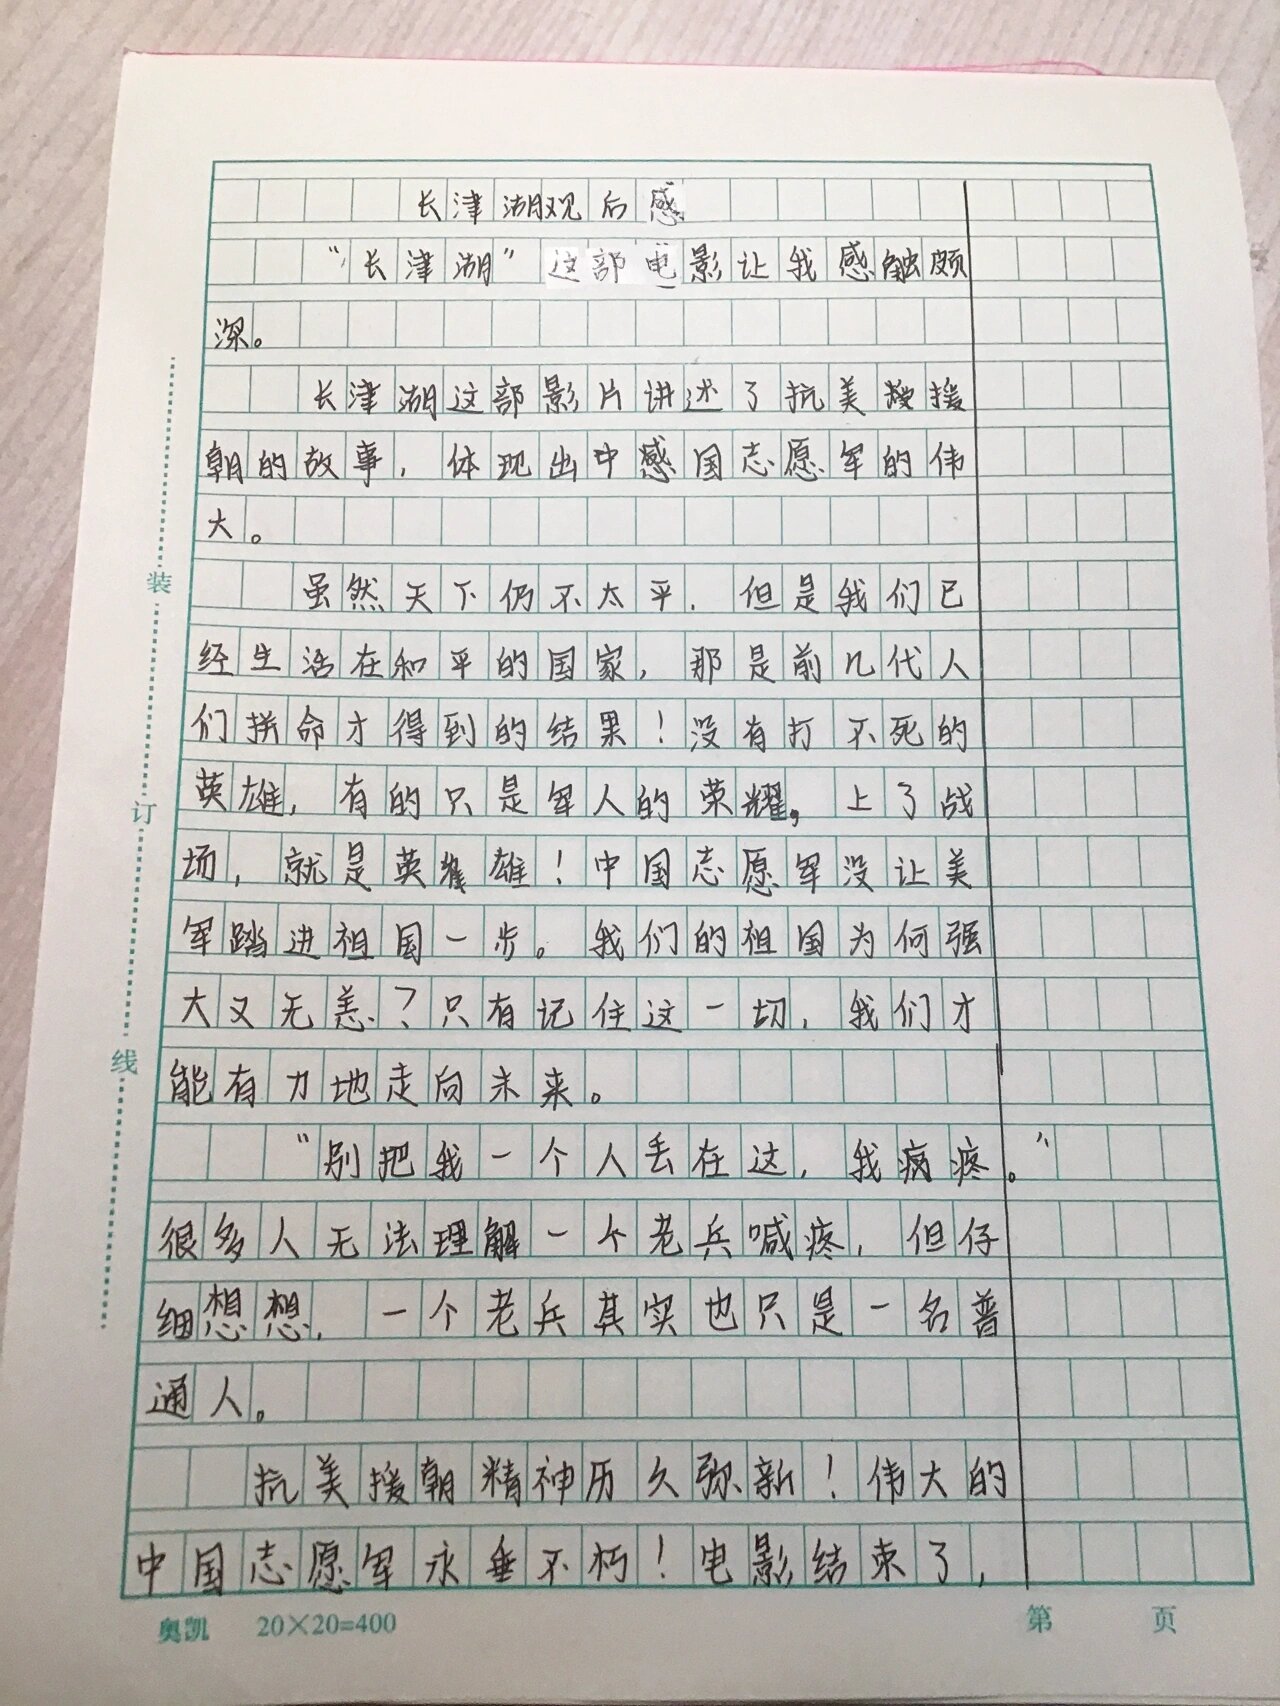 长津湖观后感
“长津湖”这部电影让我感触颇
深。
长津湖这部影片讲述了抗美援
朝的故事，体现出中国志愿军的伟
大。
虽然天下仍不太平，但是我们已
经生活在和平的国家，那是前几代人
们拼命才得到的结果！没有打不死的
英雄，有的只是军人的荣耀，上了战
场，就是英雄！中国志愿军没让美
军踏进祖国一步。我们的祖国为何强
大又无恙？只有记住这一切，我们才
能有力地走向未来。
“别把我一个人丢在这，我疯疼。”
很多人无法理解一个老兵喊疼，但仔
细想想，一个老兵其实也只是一名普
通人。
抗美援朝精神历久弥新！伟大的
中国志愿军永垂不朽！电影结束了，
装
订
线
奥凯 20×20=400 第 页